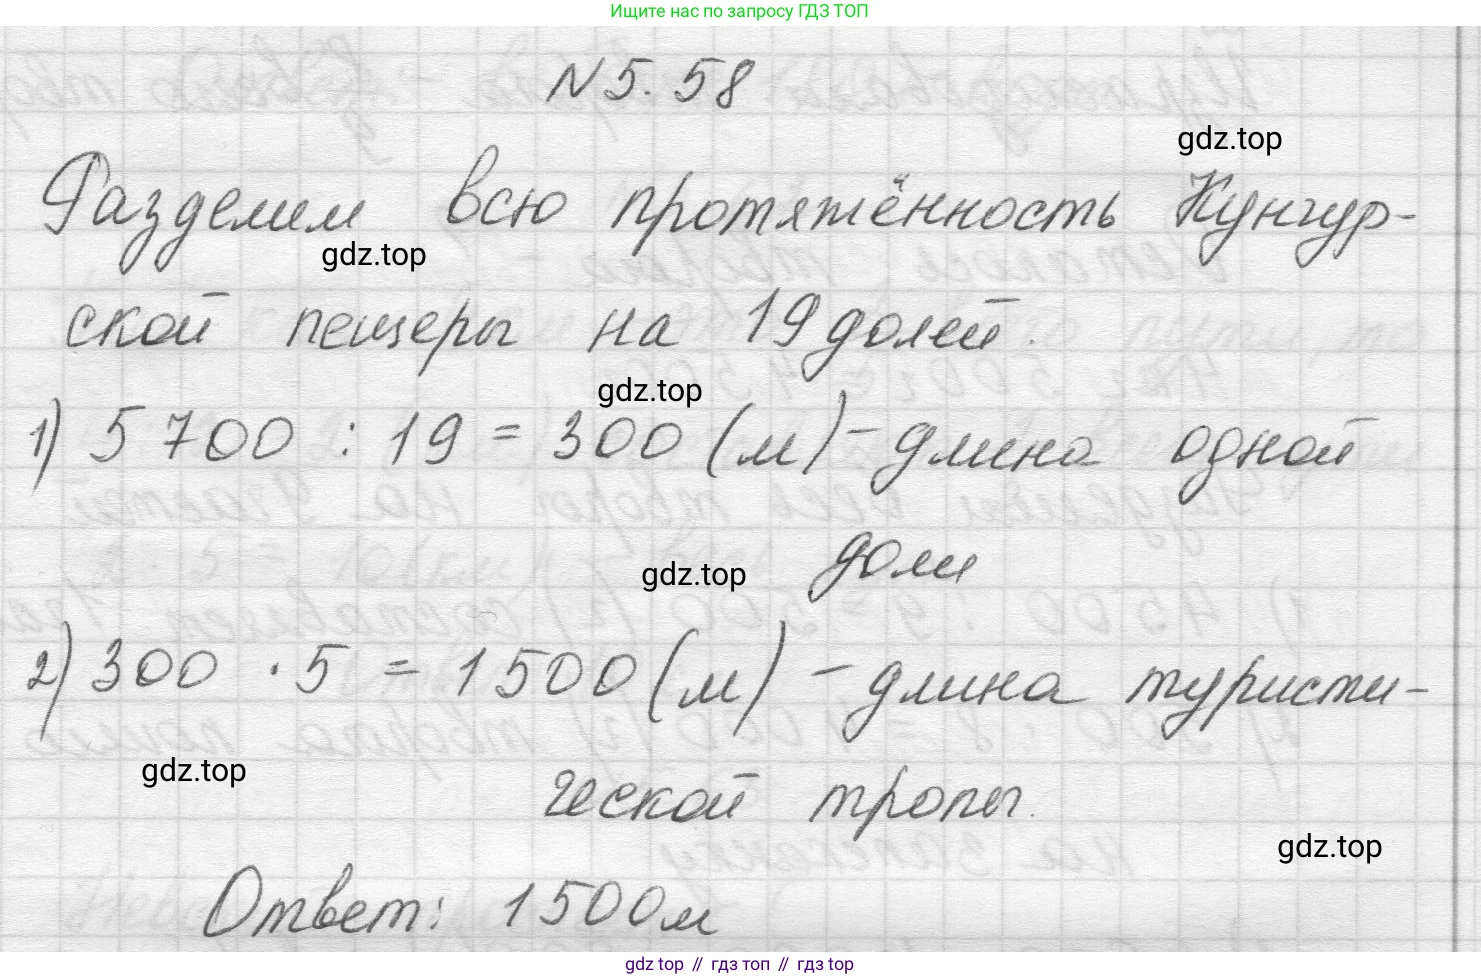 Ищите нас по запросу ГДЗ ТОП
N 5. 58
gdz.top
Разделим всю протяжённость Кунгур-
gdz.top
ской пещеры на 19 долей.
gdz.top
1) 5 700 : 19 = 300 (м) - длина одной
доли
gdz.top
2) 300 · 5 = 1 500 (м) - длина туристи-
gdz.top
ческой тропы.
gdz.top
Ответ: 1 500 м
gdz top // гдз топ // гдз top